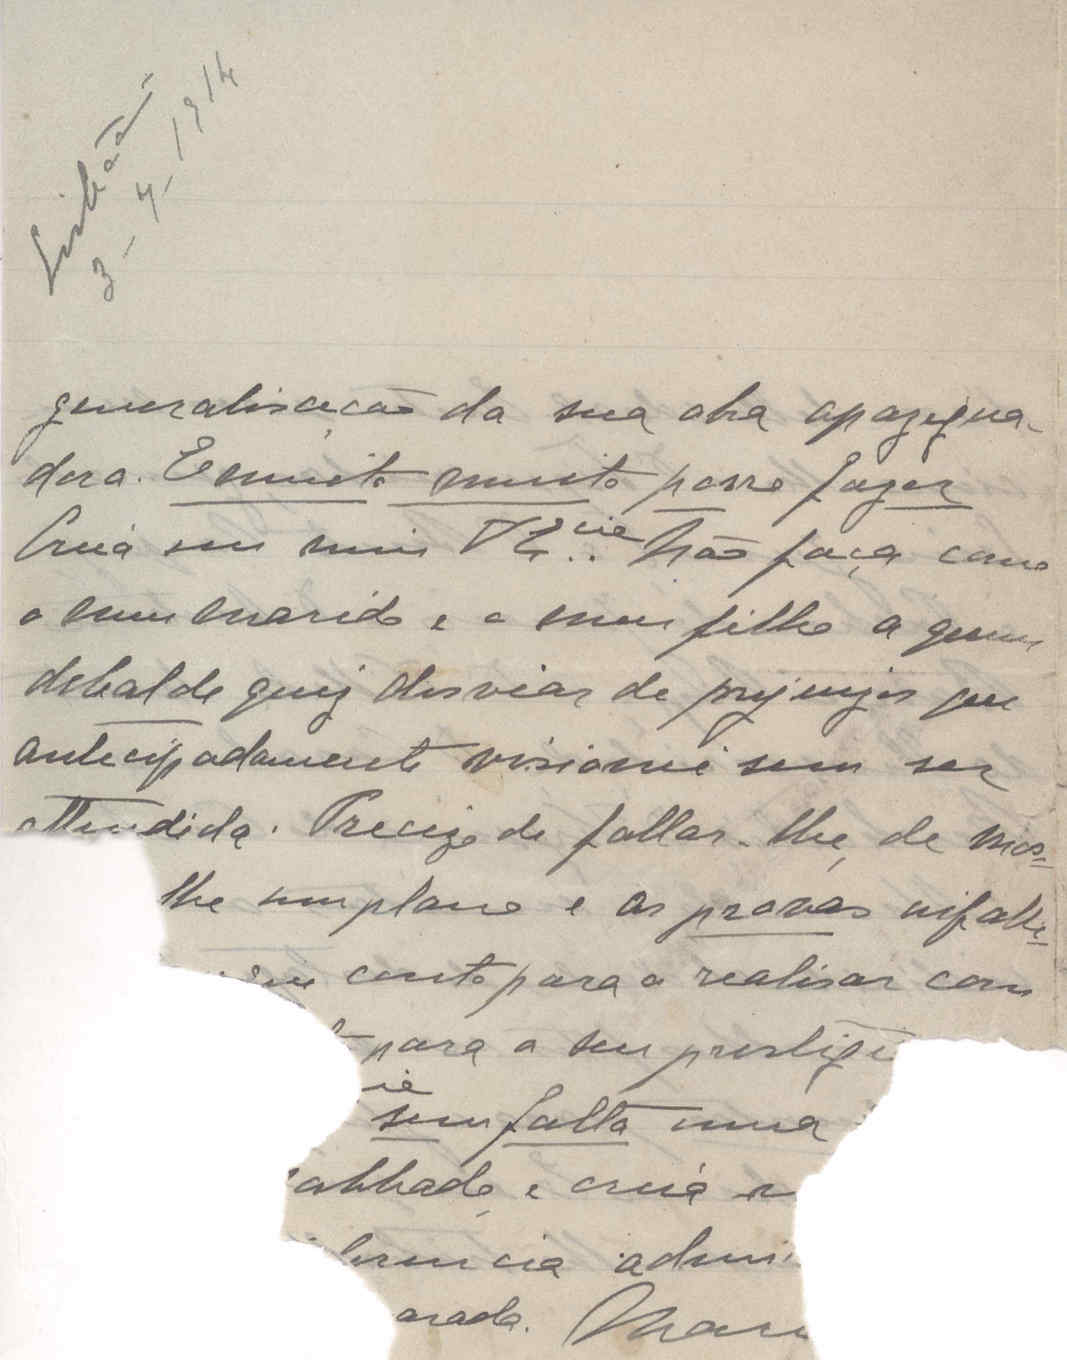 Lisboa
3-4-1914
generalisação da sua obra apazigua-
dora. E muito muito posso fazer
Creia em mim V. Ex.cia Não faça como
o meu marido e o meu filho a quem
debalde quiz desviar de prejuizos que
antecipadamente visionei sem ser
attendida. Precizo de fallar-lhe, de mos=
lhe um plano e as provas
conto para o realisar com
para o seu prestigi
sem falta uma
abbado, e creia
encia admi
orada. Mari